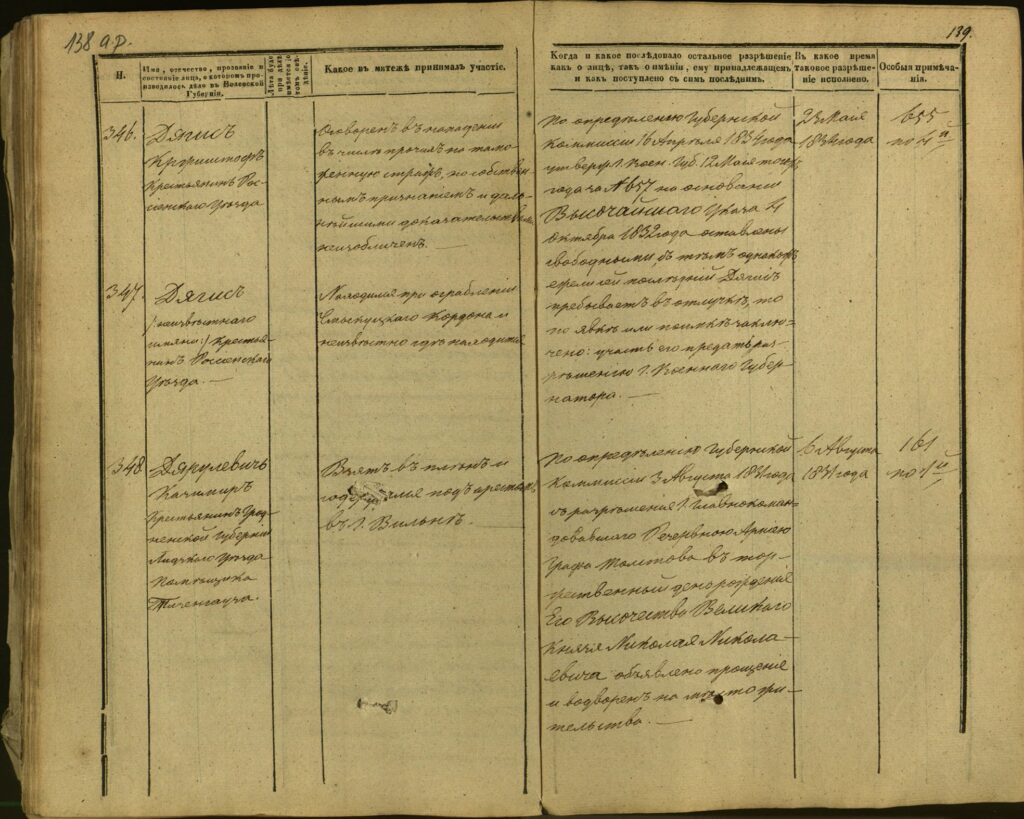 138 а.р.
139.
N.
Имя, отчество, прозваніе и
состояніе лицъ, о которомъ про-
изводилось дѣло въ Виленской
Губерніи.
Какое въ мятежѣ принималъ участіе.
Когда и какое послѣдовало остальное разрѣшеніе
какъ о лицѣ, такъ о имѣніи, ему принадлежащемъ
и какъ поступлено съ симъ послѣднимъ.
Въ какое время
таковое разрѣше-
ніе исполнено.
Особыя примѣча-
нія.
346.
Дягисъ
Криштофъ
Крестьянинъ Рос-
сіенскаго Уѣзда
Оговоренъ въ нападеніи
въ числѣ прочихъ на тамо-
женную стражу, но собствен-
нымъ признаніемъ и даль-
нѣйшими доказательствами
неизобличенъ. —
По опредѣленію Губернской
Коммисіи 16 Апрѣля 1834 года
утвержд. Г. Воен. Губ. 12 Мая того
года за № 657 на основаніи
Высочайшаго Указа 4
Октября 1832 года оставлены
свободными съ тѣмъ однакожъ
если сей послѣдній Дягис
пребываетъ въ отлучкѣ, то
по явкѣ или поимкѣ заклю-
чено: участь его предать раз-
рѣшенію Г. Военнаго Губер-
натора. —
23 Мая
1834 года
655
по 4й
347.
Дягисъ
/:неизвѣстнаго
имяни:/ Крестья-
нинъ Россіенскаго
Уѣзда. —
Находился при ограбленіи
Кордона и
неизвѣстно гдѣ находится
348.
Дярулевичъ
Казимиръ
Крестьянинъ Грод-
ненской Губерніи
Лидскаго Уѣзда
Помѣщика
Тизенгауза.
Взятъ въ плѣнъ и
подъ арестомъ
въ г. Вильнѣ.
По опредѣленію Губернской
Коммисіи 3 Августа 1831 года
съ разрѣшенія Г. Главнокоман-
довавшаго Резервною Арміею
Графа Толстова въ тор-
жественный день рожденія
Его Высочества Великаго
Князя Николая Никола-
евича объявлено прощеніе
и водворенъ на мѣсто жи-
тельства. —
6 Августа
1831 года
161
по 1й